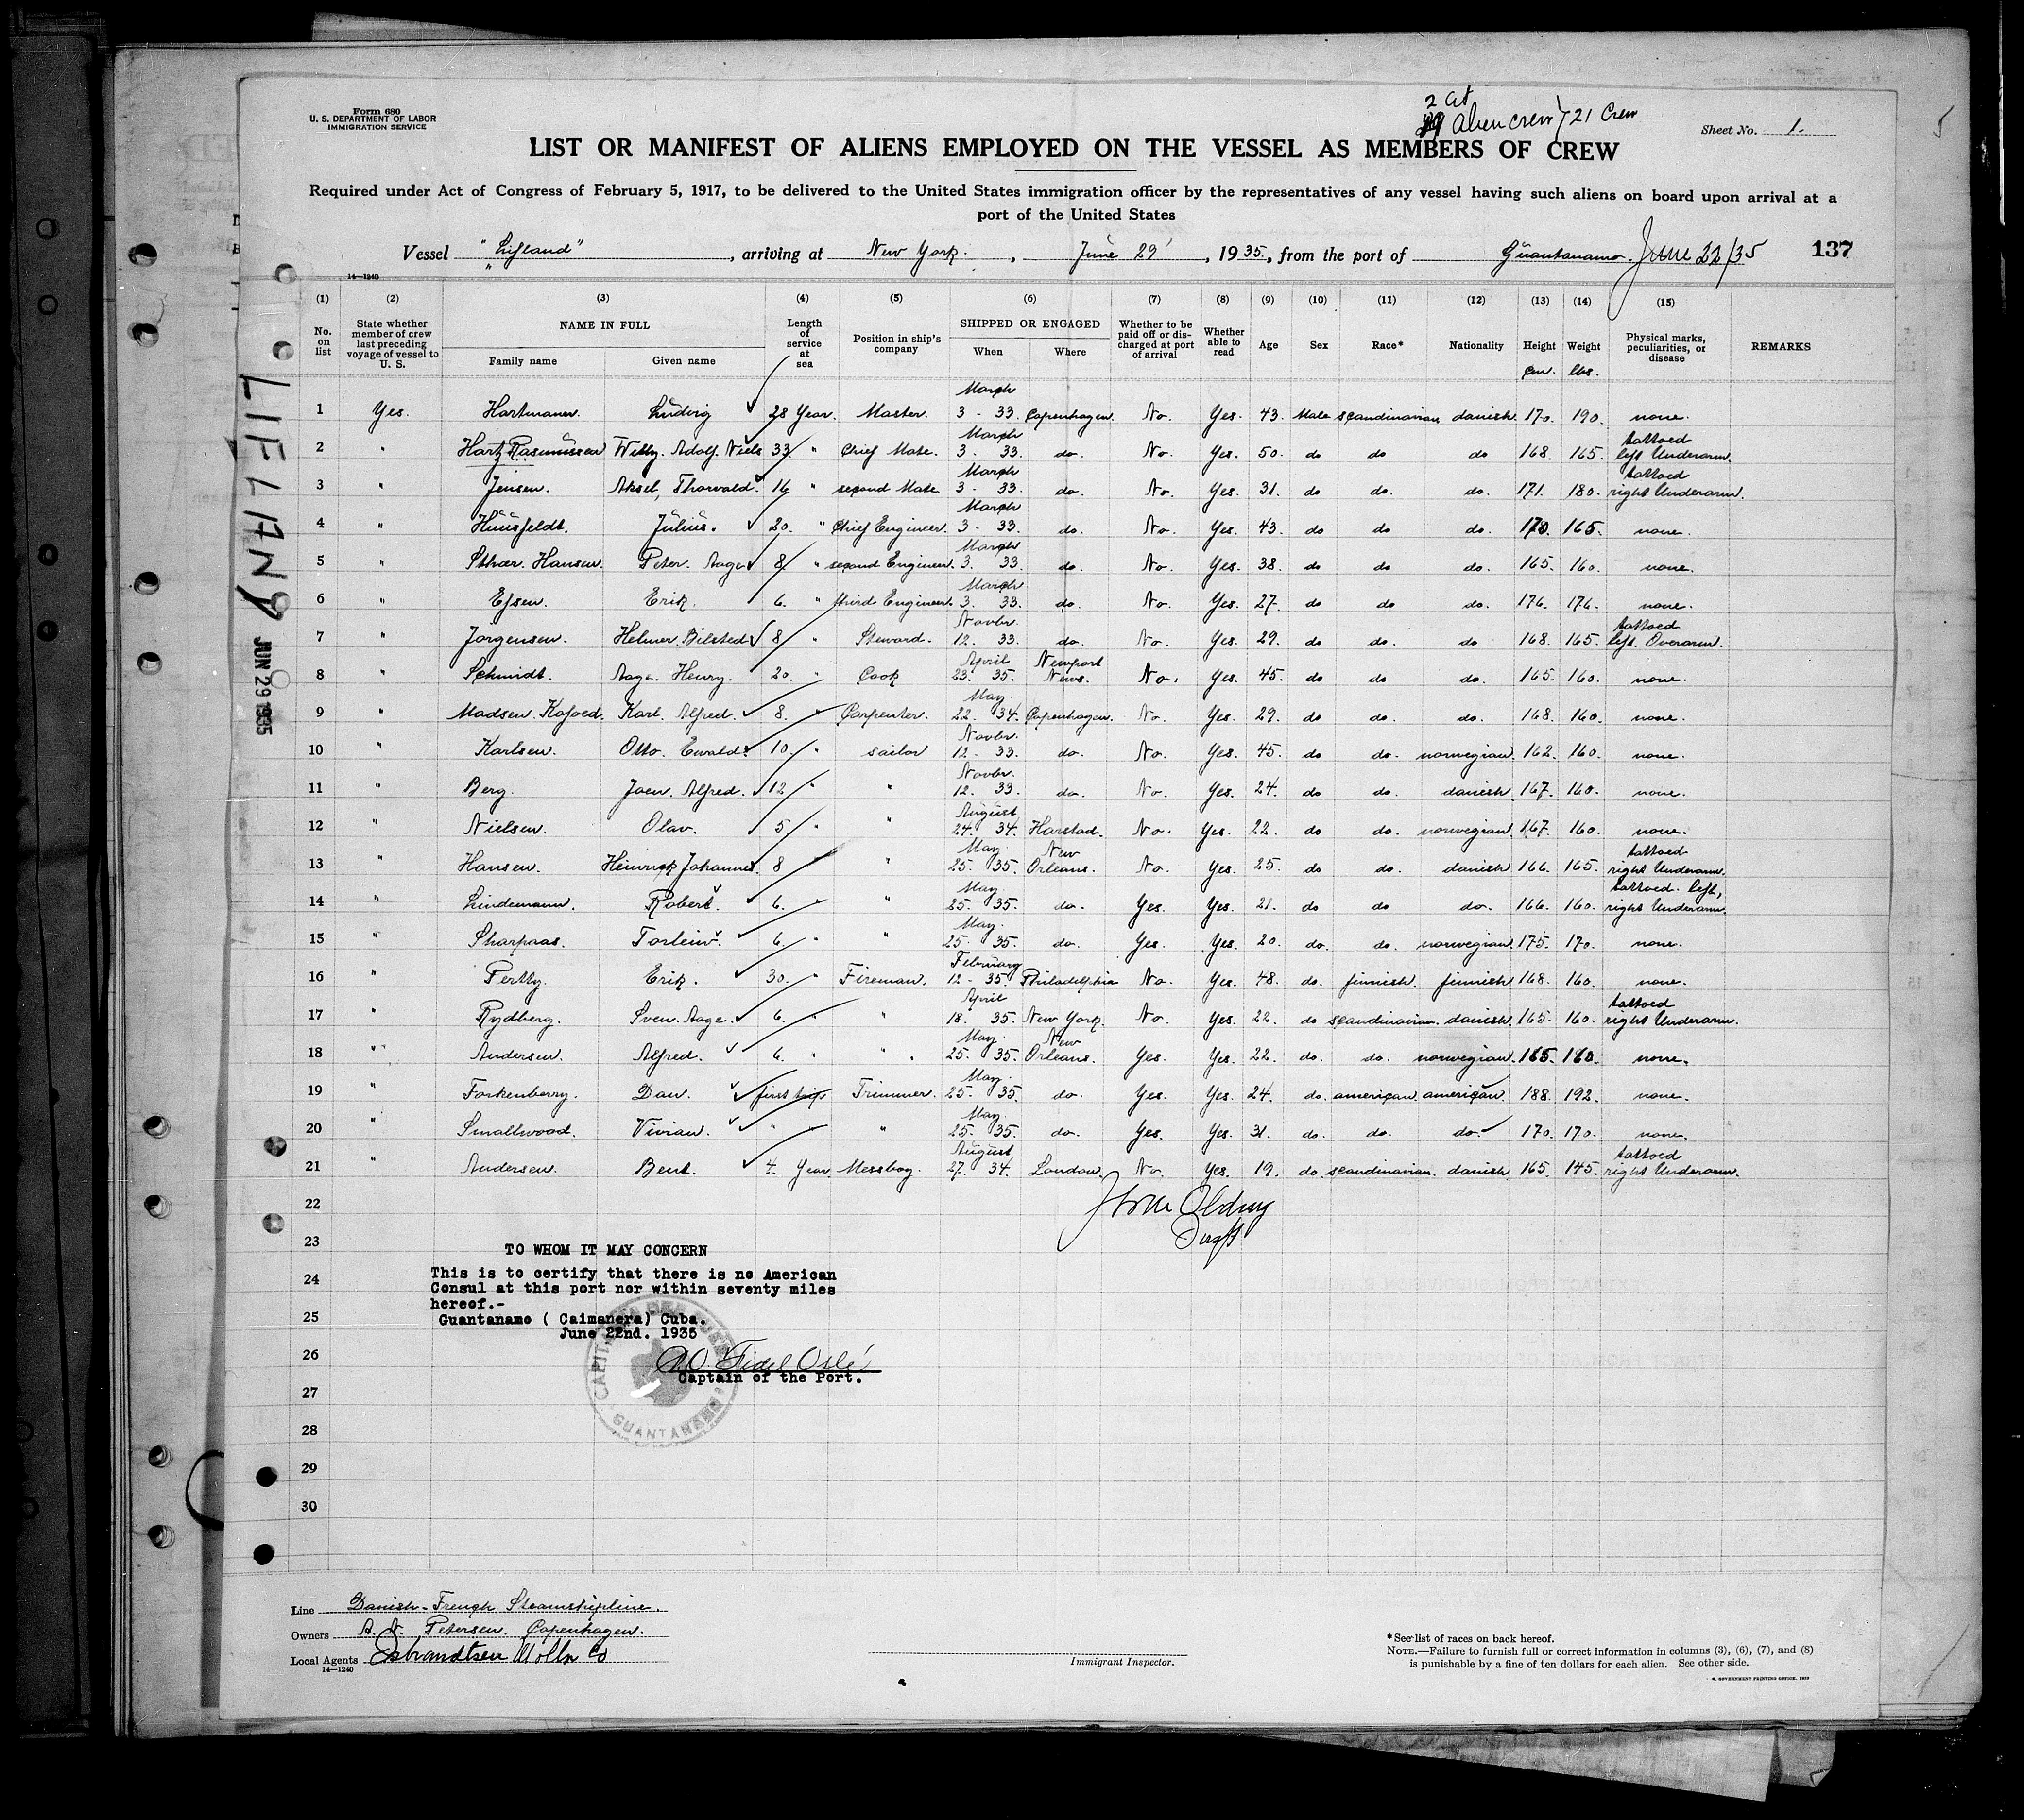 Form 680
U. S. DEPARTMENT OF LABOR
IMMIGRATION SERVICE
2 at
19 alien crew } 21 Crew
Sheet No. 1.
5
LIST OR MANIFEST OF ALIENS EMPLOYED ON THE VESSEL AS MEMBERS OF CREW
Required under Act of Congress of February 5, 1917, to be delivered to the United States immigration officer by the representatives of any vessel having such aliens on board upon arrival at a
port of the United States
Vessel "Lifland", arriving at New York., June 29, 1935, from the port of Guantanamo. June 22/35 137
14—1240
(1) (2) (3) (4) (5) (6) (7) (8) (9) (10) (11) (12) (13) (14) (15)
No. on list | State whether member of crew last preceding voyage of vessel to U. S. | NAME IN FULL Family name Given name | Length of service at sea | Position in ship's company | SHIPPED OR ENGAGED When Where | Whether to be paid off or discharged at port of arrival | Whether able to read | Age | Sex | Race* | Nationality | Height cm. | Weight lbs. | Physical marks, peculiarities, or disease | REMARKS
1 Yes. Hartmann. Ludvig 28 Year. Master. March 3 - 33. Copenhagen. No. Yes. 43. Male scandinavian danish. 170. 190. none.
2 " Hartz Rasmussen Willy. Adolf. Niels 33 " Chief Mate. March 3 - 33. do. No. Yes. 50. do do do 168. 165. tattoed left Underarm.
3 " Jensen. Aksel, Thorvald. 16 " second Mate March 3 - 33. do. No. Yes. 31. do do. do. 171. 180. tattoed right Underarm.
4 " Huusfeldt. Julius. 20. " Chief Engineer. March 3 - 33. do. No. Yes. 43. do do do. 170. 165. none.
5 " Sthær. Hansen. Peter. Aage 8 " second Engineer. March 3. 33. do. No. Yes. 38. do do do. 165. 160. none.
6 " Erik. 6. " third Engineer. March 3. 33. do. No. Yes. 27. do do do. 176. 176. none.
7 " Jørgensen. Helmer. Bilsted 8 " Steward. Novbr. 12. 33. do. No. Yes. 29. do do. do 168. 165. tattoed left. Overarm.
8 " Schmidt. Aage. Henry. 20. " Cook April 23. 35. Newport News. No. Yes. 45. do do do. 165. 160. none.
9 " Madsen. Kofoed. Karl. Alfred. 8. " Carpenter. May. 22. 34. Copenhagen. No. Yes. 29. do do. do. 168. 160. none.
10 " Karlsen. Otto. Ewald 10 " sailor Novbr. 12 - 33. do. No. Yes. 45. do do. norwegian. 162. 160. none.
11 " Berg. Alfred. 12 " " Novbr. 12. 33. do. No. Yes. 24. do do. danish. 167. 160. none.
12 " Nielsen. Olav. 5 " " August 24. 34. Harstad. No. Yes. 22. do do. norwegian. 167. 160. none.
13 " Hansen. Heinrich Johannes. 8 " " May. 25. 35. New Orleans. No. Yes. 25. do do. danish 166. 165. tattoed right Underarm.
14 " Lindemann. Robert. 6. " " May. 25. 35. do. Yes. Yes. 21. do do do. 166. 160. tattoed. left, right Underarm.
15 " Torleiv. 6. " " May. 25. 35. do. Yes. Yes. 20. do. do. norwegian 175. 170. none.
16 " Erik. 30. " Fireman. February 12 - 35. Philadelphia No. Yes. 48. do. finnish. finnish 168. 160. none.
17 " Rydberg. Sven. Aage. 6. " " April 18. 35. New York. No. Yes. 22. do scandinavian. danish. 165. 160. tattoed right Underarm.
18 " Andersen. Alfred. 6. " " May. 25. 35. New Orleans. Yes. Yes. 22. do. do. norwegian. 165. 160. none.
19 " Forkenberry. Dan. first trip. Trimmer. May. 25. 35. do. Yes. Yes. 24. do. american. american. 188. 192. none.
20 " Smallwood. Vivian. " " " May. 25. 35. do. Yes. Yes. 31. do. do. do. 170. 170. none.
21 " Andersen. Bent. 4. Year. Messboy. August 27. 34. London. No. Yes. 19. do. scandinavian. danish. 165 145. tattoed right Underarm.
22
23
24
25
26
27
28
29
30
LIFLAND
JUN 29 1935
TO WHOM IT MAY CONCERN
This is to certify that there is no American
Consul at this port nor within seventy miles
hereof.-
Guantanamo ( Caimanera) Cuba.
June 22nd. 1935
Captain of the Port.
GUANTANAMO
Line Danish-French Steamshipline.
Owners A. N. Petersen. Copenhagen.
Local Agents Isbrandtsen Moller Co
14—1240
Immigrant Inspector.
* See list of races on back hereof.
NOTE.—Failure to furnish full or correct information in columns (3), (6), (7), and (8)
is punishable by a fine of ten dollars for each alien. See other side.